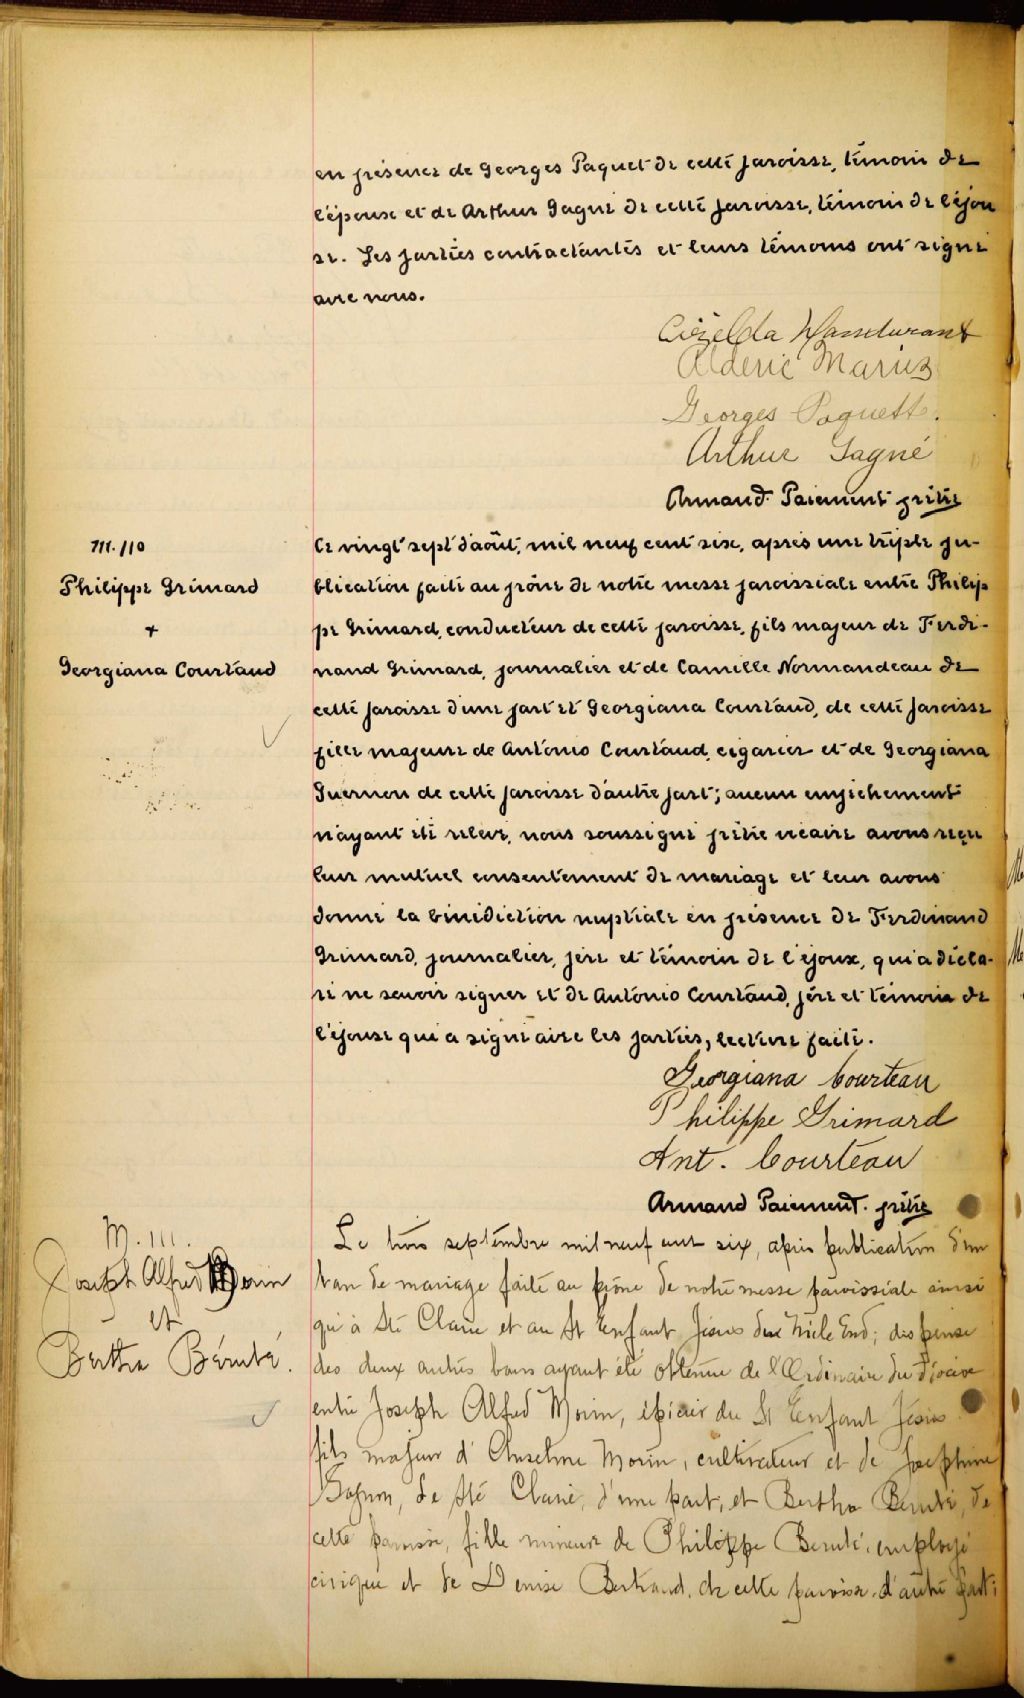 en présence de Georges Paquet de cette paroisse, témoin de
l'épouse et de Arthur Gagné de cette paroisse, témoin de l'épou
se. Les parties contractantes et leurs témoins ont signé
avec nous.
Alderic
Georges Paquette.
Arthur Gagné
Armand Paiement prêtre
M. 110
Philippe Grimard
+
Georgiana Courtaud
Ce vingt sept d'août, mil neuf cent six, après une triple pu-
blication faite au prône de notre messe paroissiale entre Philip
pe Grimard, conducteur de cette paroisse, fils majeur de Ferdi-
nand Grimard, journalier et de Camille Normandeau de
cette paroisse d'une part et Georgiana Courtaud, de cette paroisse
fille majeure de Antonio Courtaud, cigarier et de Georgiana
Guernon de cette paroisse d'autre part; aucun empêchement
n'ayant été relevé, nous soussigné prêtre vicaire avons reçu
leur mutuel consentement de mariage et leur avons
donné la bénédiction nuptiale en présence de Ferdinand
Grimard, journalier, père et témoin de l'époux, qui a décla-
ré ne savoir signer et de Antonio Courtaud, père et témoin de
l'épouse qui a signé avec les parties, lecture faite.
Georgiana Courteau
Philippe Grimard
Ant. Courteau
Armand Paiement. prêtre
M. 111.
Joseph Alfred Morin
et
Bertha Bérubé.
Le trois septembre mil neuf cent six, après publication d'un
ban de mariage faite au prône de notre messe paroissiale ainsi
qu'à Ste Claire et au St Enfant Jésus du Mile End; dispense
des deux autres bans ayant été obtenue de l'Ordinaire du diocèse
entre Joseph Alfred Morin, épicier du St Enfant Jésus
fils majeur d'Anselme Morin, cultivateur et de Josephine
Gagnon, de Ste Claire, d'une part, et Bertha Bérubé, de
cette paroisse, fille mineure de Philippe Bérubé, employé
civique et de Denise Bertrand, de cette paroisse, d'autre part;